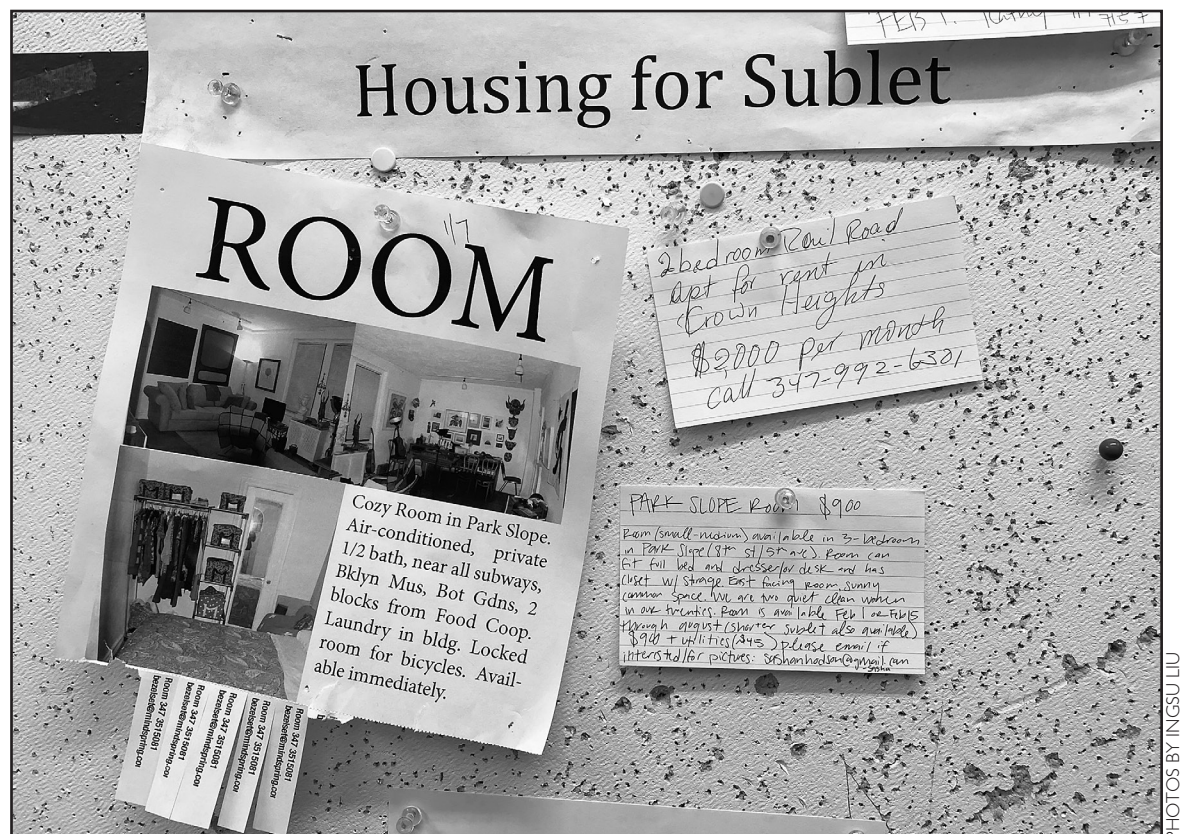 FEB 1. Kathy
7157
Housing for Sublet
ROOM
1/7
Cozy Room in Park Slope.
Air-conditioned, private
1/2 bath, near all subways,
Bklyn Mus, Bot Gdns, 2
blocks from Food Coop.
Laundry in bldg. Locked
room for bicycles. Avail-
able immediately.
Room 347 3515081
bezelset@mindspring.com
Room 347 3515081
bezelset@mindspring.com
Room 347 3515081
bezelset@mindspring.com
Room 347 3515081
bezelset@mindspring.com
Room 347 3515081
bezelset@mindspring.com
2 bedroom Rail Road
apt for rent in
Crown Heights
$2000 per month
call 347-992-6301
PARK SLOPE ROOM $900
Room (small-medium) available in 3-bedroom
in Park Slope (8th st/5th ave). Room can
fit full bed and dresser/or desk and has
closet w/ storage. East facing room, sunny
common space. We are two quiet clean women
in our twenties. Room is available Feb 1 or Feb 15
through august (shorter sublet also available)
$900 + utilities ($45) please email if
interested/for pictures:
-Sasha
PHOTOS BY INGSU LIU